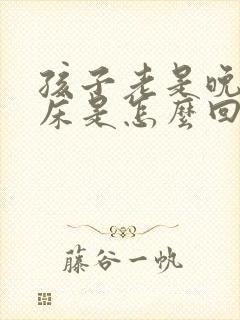 孩子老是晚
床是怎麼回
藤谷一帆